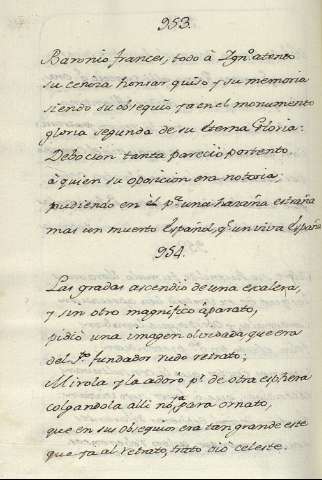 953.
Baronio frances, todo à Ign.º atento
su ceniza honrar quiso y su memoria
siendo su obsequio ya en el monumento
gloria segunda de su eterna Gloria:
Debocion tanta pareció portento
à quien su oposicion era notoria;
pudiendo en el p.ª una hazaña estraña
mas un muerto Español, q.e un viva España
954.
Las gradas ascendio de una escalera,
y sin otro magnifico àparato,
pidiò una imagen olvidada, que era
del S.to fundador rudo retrato;
Mirola y la adorò p.r de otra esphera
colgandola alli para ornato,
que en su obsequio era tan grande este
que ya al retrato, trato diò celeste.